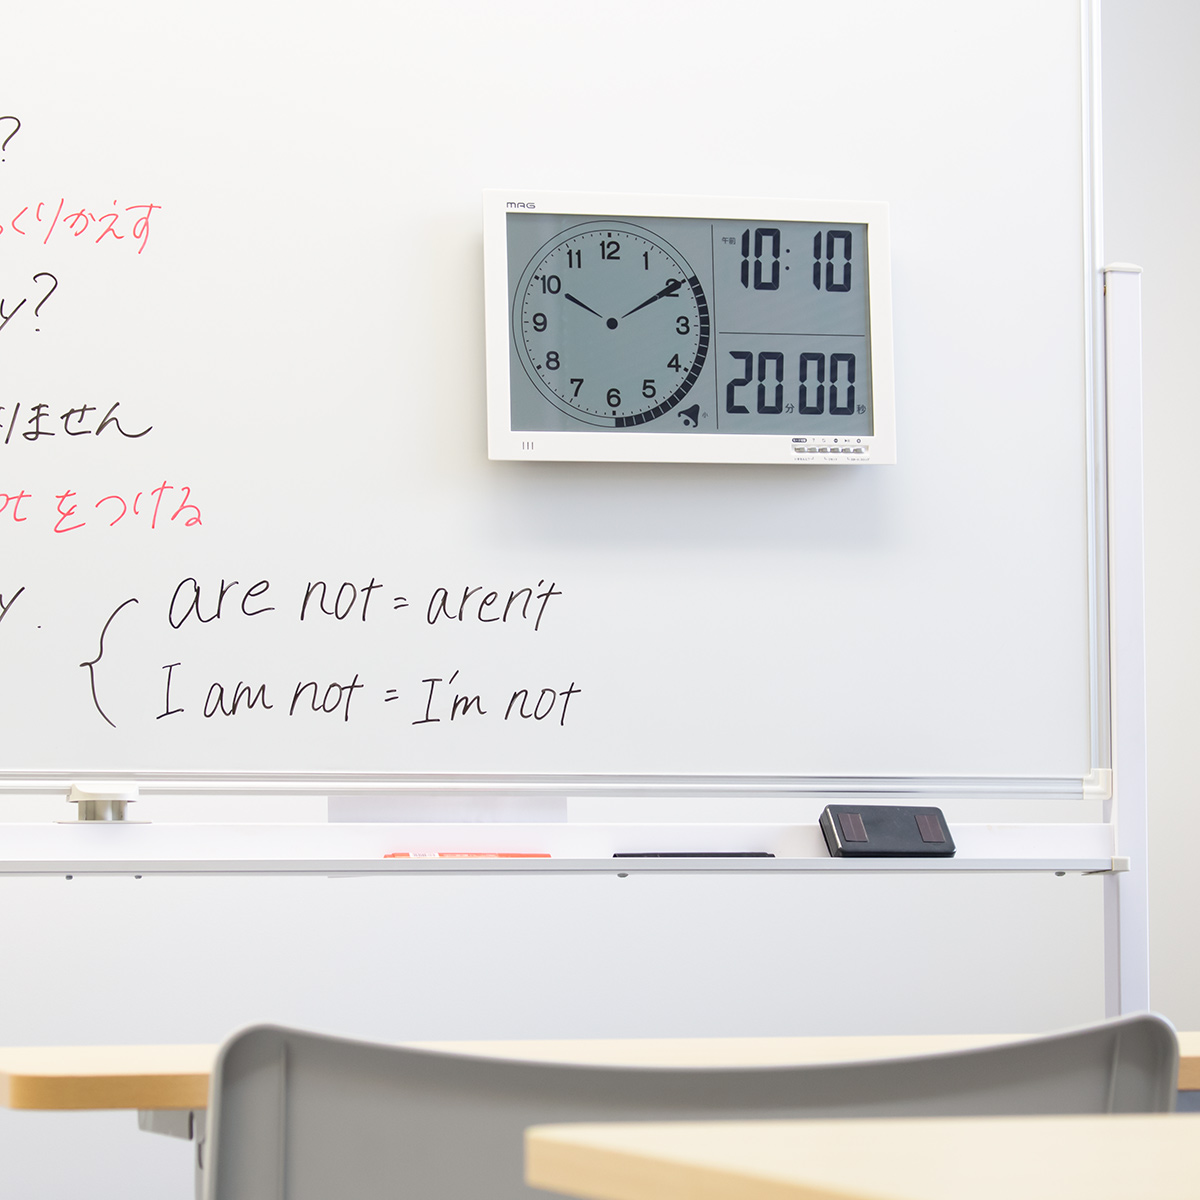 ?
くりかえす
y?
りません
otをつける
y.
are not = aren't
I am not = I'm not
MAG
12
1
2
3
4
5
6
7
8
9
10
11
午前 10:10
20分00秒
小